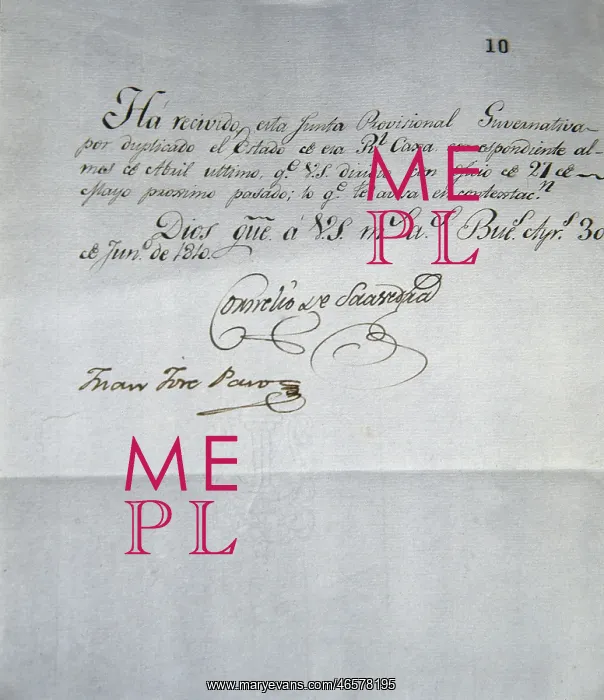 10
Há recivido esta Junta Provisional Guvernativa
por duplicado el Estado de esa Rl. Caxa correspondiente al
mes de Abril ultimo, qe. V.S. dirije con oficio de 21 de
Mayo proximo pasado; lo qe. le avisa en contextacn.
Dios gue. á V.S. ms. as. Bues. Ayrs. 30
de Juno. de 1810.
Cornelio de Saavedra
Juan Jose Paso
ME
PL
ME
PL
www.maryevans.com/46578195